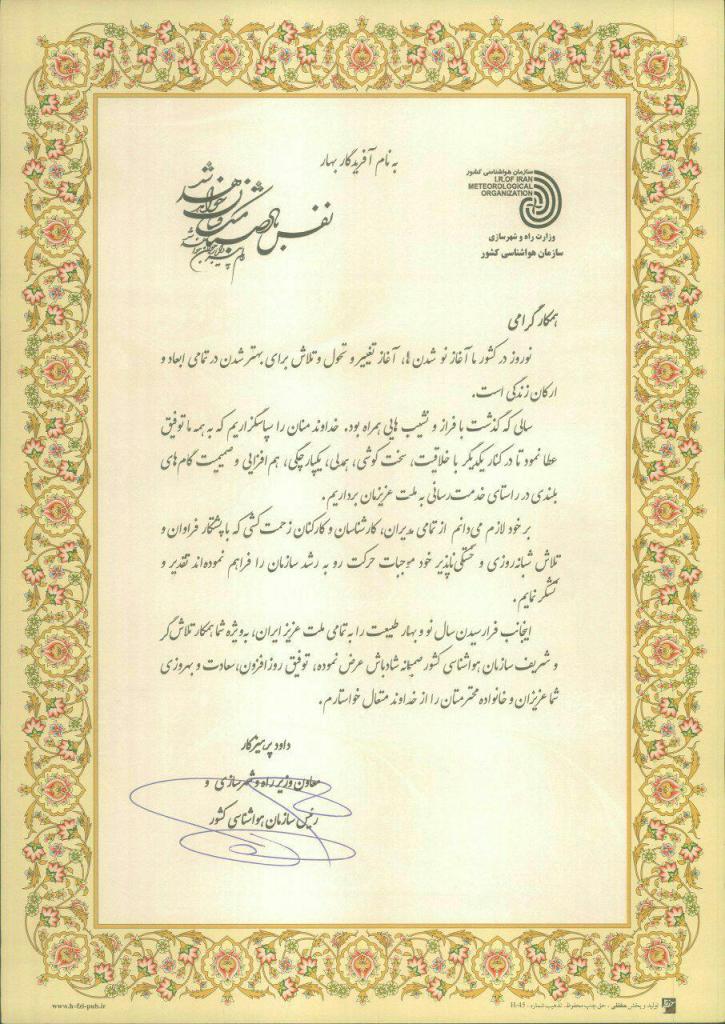 به نام آفریدگار بهار
سازمان هواشناسی کشور
I.R.OF IRAN
METEOROLOGICAL
ORGANIZATION
وزارت راه و شهرسازی
سازمان هواشناسی کشور
نفس باد صبا مشک فشان خواهد شد
عالم پیر دگرباره جوان خواهد شد
همکار گرامی
نوروز در کشور ما آغاز نو شدن ها، آغاز تغییر و تحول و تلاش برای بهتر شدن در تمامی ابعاد و
ارکان زندگی است.
سالی که گذشت با فراز و نشیب هایی همراه بود. خداوند منان را سپاسگزاریم که به همه ما توفیق
عطا نمود تا در کنار یکدیگر با خلاقیت، سخت کوشی، همدلی، یکپارچگی، هم افزایی و صمیمیت گام های
بلندی در راستای خدمت رسانی به ملت عزیزمان برداریم.
بر خود لازم می‌دانم از تمامی مدیران، کارشناسان و کارکنان زحمت کشی که با پشتکار فراوان و
تلاش شبانه روزی و خستگی ناپذیر خود موجبات حرکت رو به رشد سازمان را فراهم نموده اند تقدیر و
تشکر نمایم.
اینجانب فرا رسیدن سال نو و بهار طبیعت را به تمامی ملت عزیز ایران، به ویژه شما همکار تلاش گر
و شریف سازمان هواشناسی کشور صمیمانه شادباش عرض نموده، توفیق روز افزون، سعادت و بهروزی
شما عزیزان و خانواده محترمتان را از خداوند متعال خواستارم.
داود پرهیزکار
معاون وزیر راه و شهرسازی و
رئیس سازمان هواشناسی کشور
www.h-fzl-pub.ir
تولید و پخش حفظی - حق چاپ محفوظ. تذهیب شماره: H-45